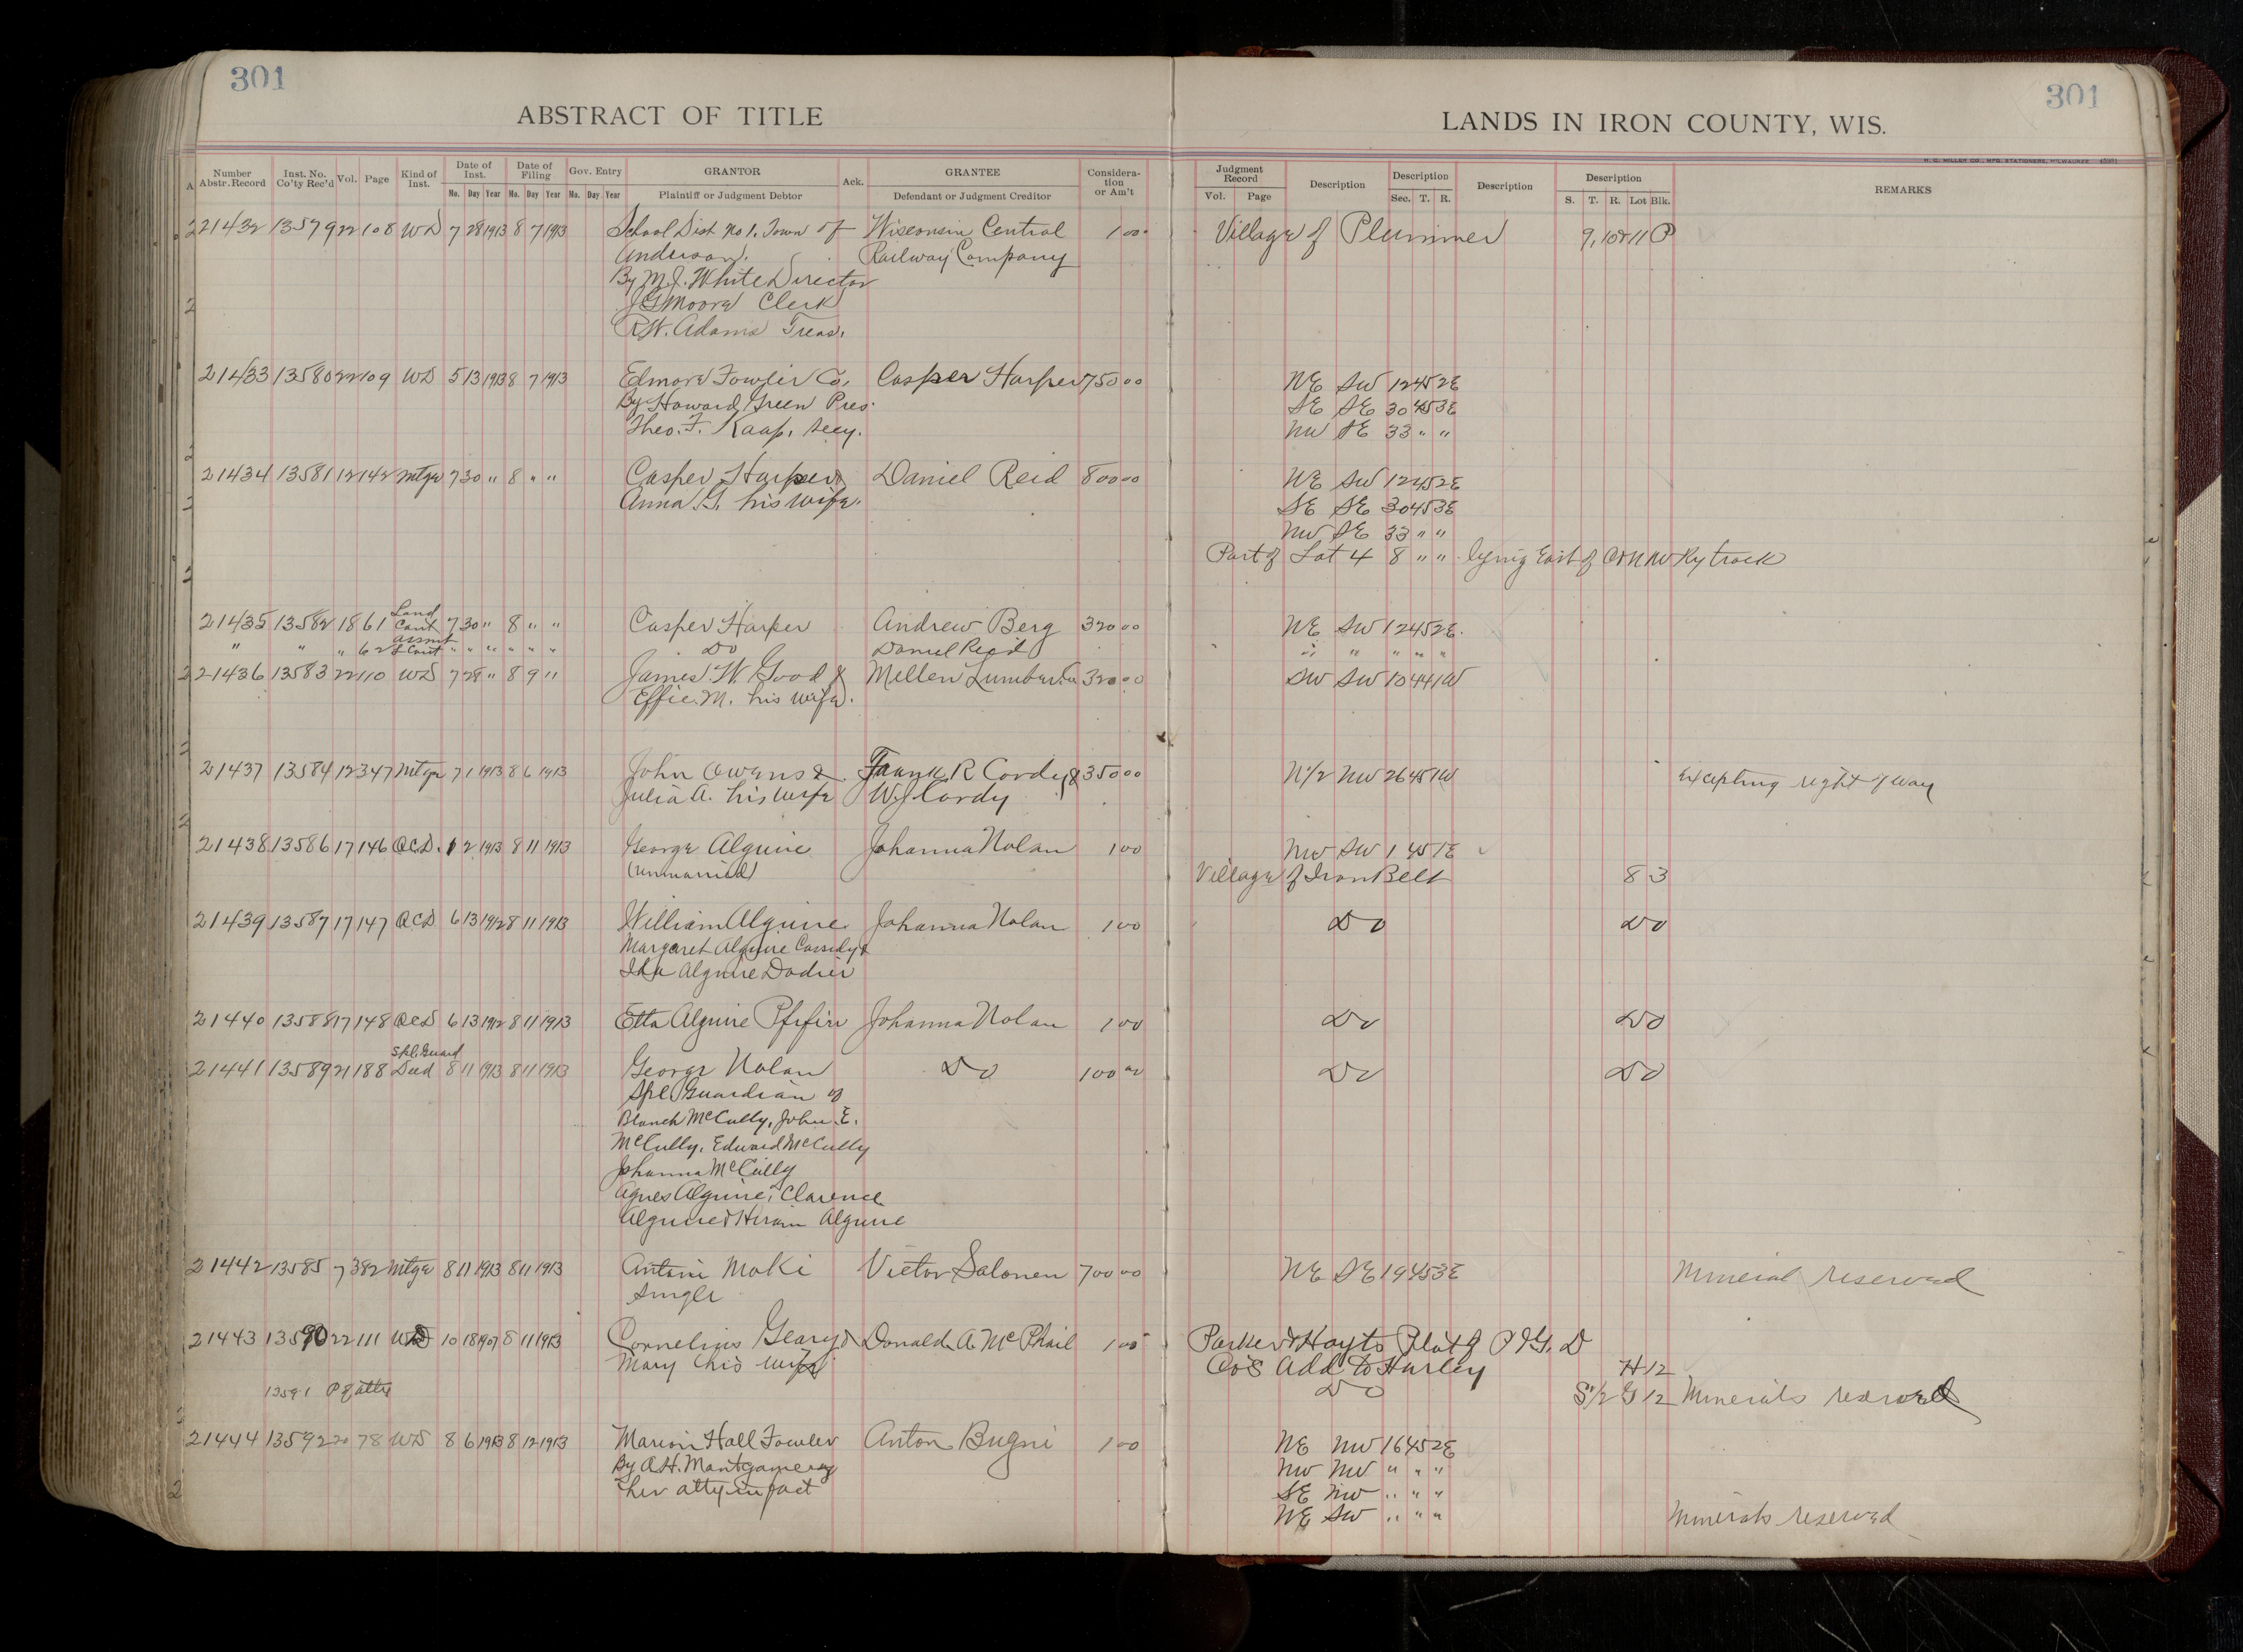 301
301
ABSTRACT OF TITLE
LANDS IN IRON COUNTY, WIS.
H. C. MILLER CO., MFG. STATIONERS, MILWAUKEE
Number Abstr. Record Inst. No. Co'ty Rec'd Vol. Page Kind of Inst. Date of Inst. No. Day Year Date of Filing Mo. Day Year Gov. Entry Mo. Day Year GRANTOR Plaintiff or Judgment Debtor Ack. GRANTEE Defendant or Judgment Creditor Considera-tion or Am't Judgment Record Vol. Page Description Description Sec. T. R. Description Description S. T. R. Lot Blk. REMARKS
21432 13579 22 108 WD 7 28 1913 8 7 1913 School Dist No 1. Town of Wisconsin Central 1 00 Village of Plummer 9, 10 & 11 P
Anderson. Railway Company
By M.J. White Director
J G Moore Clerk
R.W. Adams Treas.
21433 13580 22 109 WD 5 13 1913 8 7 1913 Elmore Fowler Co. Casper Harper 750 00 NE SW 12 45 2E
By Howard Green Pres. SE SE 30 45 3E
Theo. F. Kaap, Secy. NW SE 33 " "
21434 13581 12 142 Mtge 7 30 " 8 " " Casper Harper & Daniel Reid 800 00 NE SW 12 45 2E
Anna G. his wife. SE SE 30 45 3E
NW SE 33 " "
Part of Lot 4 8 " " lying East of C & NW Ry track
21435 13582 18 61 Land Cont 7 30 " 8 " " Casper Harper Andrew Berg 320 00 NE SW 12 45 2E.
" " " 62 Assmt L Cont " " " " " " Do Daniel Reid " " " " "
21436 13583 22 110 WD 7 28 " 8 9 " James W. Good & Mellen Lumber Co 320 00 SW SW 10 44 1W
Effie M. his wife.
21437 13584 12 347 Mtge 7 1 1913 8 6 1913 John Owens & Frank R Cordy & 350 00 N 1/2 NW 26 45 1W Excepting right of way
Julia A. his wife W J Cordy
21438 13586 17 146 QCD. 1 2 1913 8 11 1913 George Alguire Johanna Nolan 1 00 NW SW 1 45 1E
(unmarried) Village of Iron Belt 8 3
21439 13587 17 147 QCD 6 13 1912 8 11 1913 William Alguire Johanna Nolan 1 00 Do Do
Margaret Alguire Cassidy &
Ida Alguire Dodier
21440 13588 17 148 QCD 6 13 1912 8 11 1913 Etta Alguire Johanna Nolan 1 00 Do Do
21441 13589 21 188 Spl. Guard Deed 8 11 1913 8 11 1913 George Nolan Do 100 00 Do Do
Spl. Guardian of
Blanch McCully, John E.
McCully, Edward McCully
Johanna McCully
Agnes Alguire, Clarence
Alguire & Hiram Alguire
21442 13585 7 382 Mtge 8 11 1913 8 11 1913 Antoni Maki Victor Salonen 700 00 NE SE 19 45 3E Mineral reserved
Single
21443 13590 22 111 WD 10 18 1907 8 11 1913 Cornelius Geary & Donald A. McPhail 1 00 Parker & Hoyts Plat of P I & D
Mary his wife Co's Add to Hurley H 12
13591 P of atty Do S 1/2 G 12 Minerals reserved
21444 13592 20 78 WD 8 6 1913 8 12 1913 Marion Hall Fowler Anton Bugni 1 00 NE NW 16 45 2E
By A.H. Montgomery NW NW " " "
her atty-in fact SE NW " " "
NE SW " " " Minerals reserved